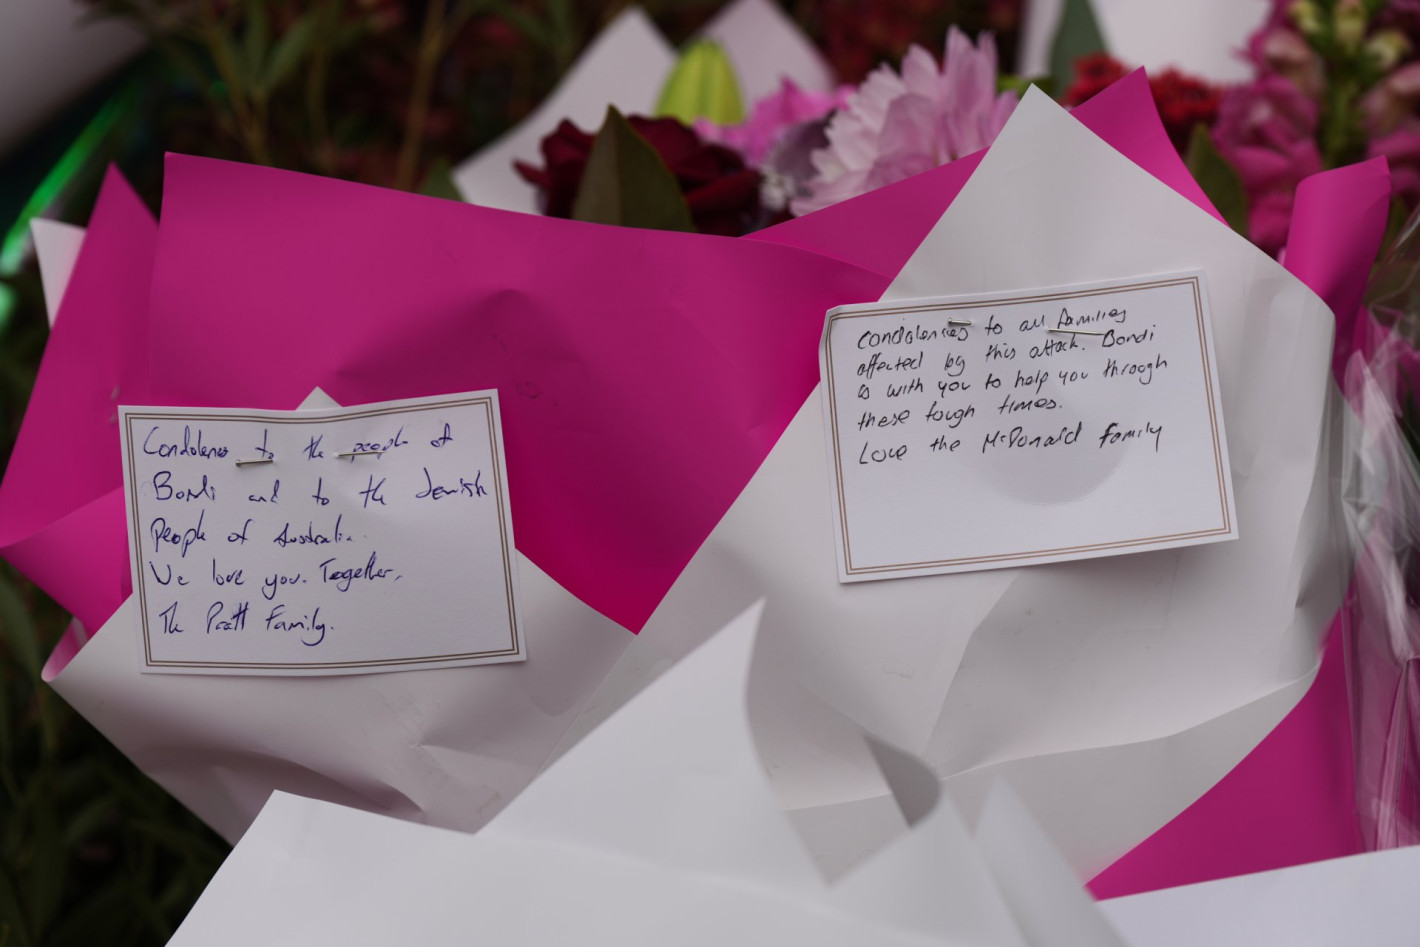 Condolences to the people of
Bondi and to the Jewish
People of Australia.
We love you. Together,
The Pratt Family.
Condolencies to all families
affected by this attack. Bondi
is with you to help you through
these tough times.
Love the McDonald family